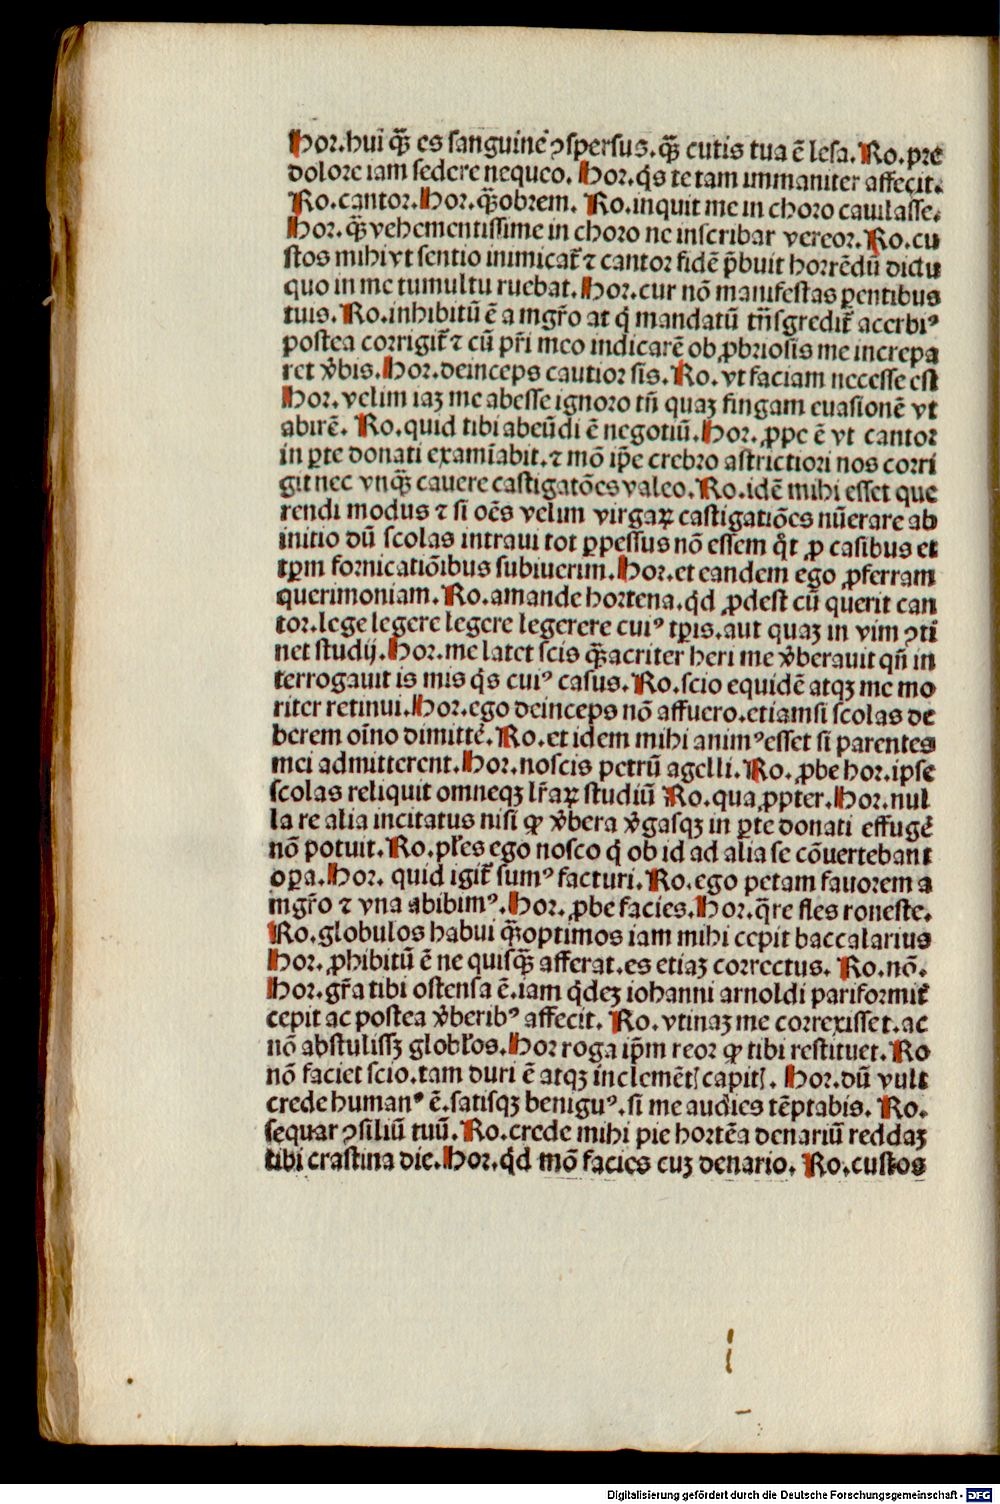 Hor.hui q̃ȝ es sanguine᷑ ꝯspersus.q̃ȝ cutis tua ē lesa.Ro.pre
dolore iam sedere nequeo. Hor.q̇s te tam immaniter affecit.
Ro.cantor.Hor.q̃ȝobrem. Ro.inquit me in choro cauilasse.
Hor.q̃ȝ vehementissime in choro ne inscribar vereor.Ro.cu
stos mihi vt sentio inimicat᷑ ⁊ cantor fidē p̄buit horrēdū dictu
quo in me tumultu ruebat.Hor.cur nō manifestas ꝑentibus
tuis. Ro.inhibitū ē a mgr̄o at q̇ mandatū tn̄sgredit᷑ acerbiꝰ
postea corrigit᷑ ⁊ cū pr̄i meo indicarē ob ꝓbriosis me increpa
ret v̾bis.Hor.deinceps cautior sis. Ro.vt faciam necesse est
Hor.velim iaȝ me abesse ignoro tn̄ quaȝ fingam euasionē vt
abirē. Ro.quid tibi abeūdi ē negotiū.Hor.ꝓpe ē vt cantor
in ꝑte donati examīabit.⁊ mō ip̄e crebro astrictiori nos corri
git nec vnq̃ȝ cauere castigatōes valeo.Ro.idē mihi esset que
rendi modus ⁊ si oēs velim virgaꝝ castigatiōes nūerare ab
initio dū scolas intraui tot ꝑpessus nō essem q̇t ꝓ casibus et
tꝑm fornicatiōibus subiuerim.Hor.et eandem ego ꝓferram
querimoniam.Ro.amande hortena.q̇d ꝓdest cū querit can
tor.lege legere legere legerere cuiꝰ tꝑis.aut quaȝ in vim ꝯti
net studij.Hor.me latet scis q̃ȝacriter heri me v̾berauit qn̄ in
terrogauit is mis q̇s cuiꝰ casus.Ro.scio equidē atqȝ me mo
riter retinui.Hor.ego deinceps nō affuero.etiamsi scolas de
berem oīno dimitte᷑.Ro.et idem mihi animꝰesset si parentes
mei admitterent.Hor.noscis petrū agelli.Ro.ꝓbe hor.ipse
scolas reliquit omneqȝ lr̄aꝝ studiū Ro.qua ꝓpter.Hor.nul
la re alia incitatus nisi ꝙ v̾bera v̾gasqȝ in ꝑte donati effuge᷑
nō potuit.Ro.pl̄es ego nosco q̇ ob id ad alia se cōuertebant
oꝑa.Hor. quid igit᷑ sumꝰ facturi.Ro.ego petam fauorem a
mgr̄o ⁊ vna abibimꝰ.Hor.ꝓbe facies.Hor.q̄re fles roneste.
Ro.globulos habui q̃ȝoptimos iam mihi cepit baccalarius
Hor.ꝓhibitū ē ne quisq̃ȝ afferat.es etiaȝ correctus. Ro.nō.
Hor.gr̄a tibi ostensa ē.iam q̇deȝ iohanni arnoldi pariformit᷑
cepit ac postea v̾beribꝰ affecit. Ro.vtinaȝ me correxisset.ac
nō abstulissȝ globl̄os.Hor roga ip̄m reor ꝙ tibi restituet.Ro
nō faciet scio.tam duri ē atqȝ inclemētꝭ capitꝭ. Hor.dū vult
crede humanꝰ ē.satisqȝ beniguꝰ.si me audies tēptabis. Ro.
sequar ꝯsiliū tuū.Ro.crede mihi pie hortēa denariū reddaȝ
tibi crastina die.Hor.q̇d mō facies cuȝ denario. Ro.custos
Digitalisierung gefördert durch die Deutsche Forschungsgemeinschaft - DFG